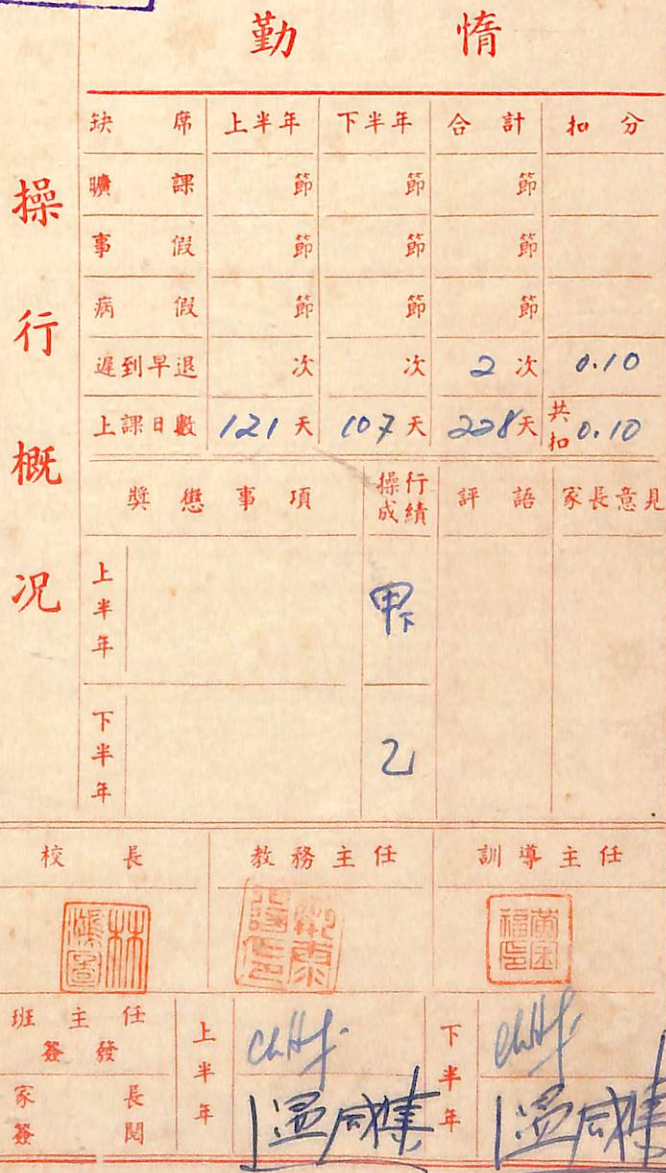 勤惰
操行概況
缺席 上半年 下半年 合計 扣分
曠課 節 節 節
事假 節 節 節
病假 節 節 節
遲到早退 次 次 2次 0.10
上課日數 121天 107天 228天 共扣0.10
獎懲事項 操行成績 評語 家長意見
上半年 甲下
下半年 乙
校長 教務主任 訓導主任
林鴻圖
班主任簽發 上半年 下半年
家長簽閱